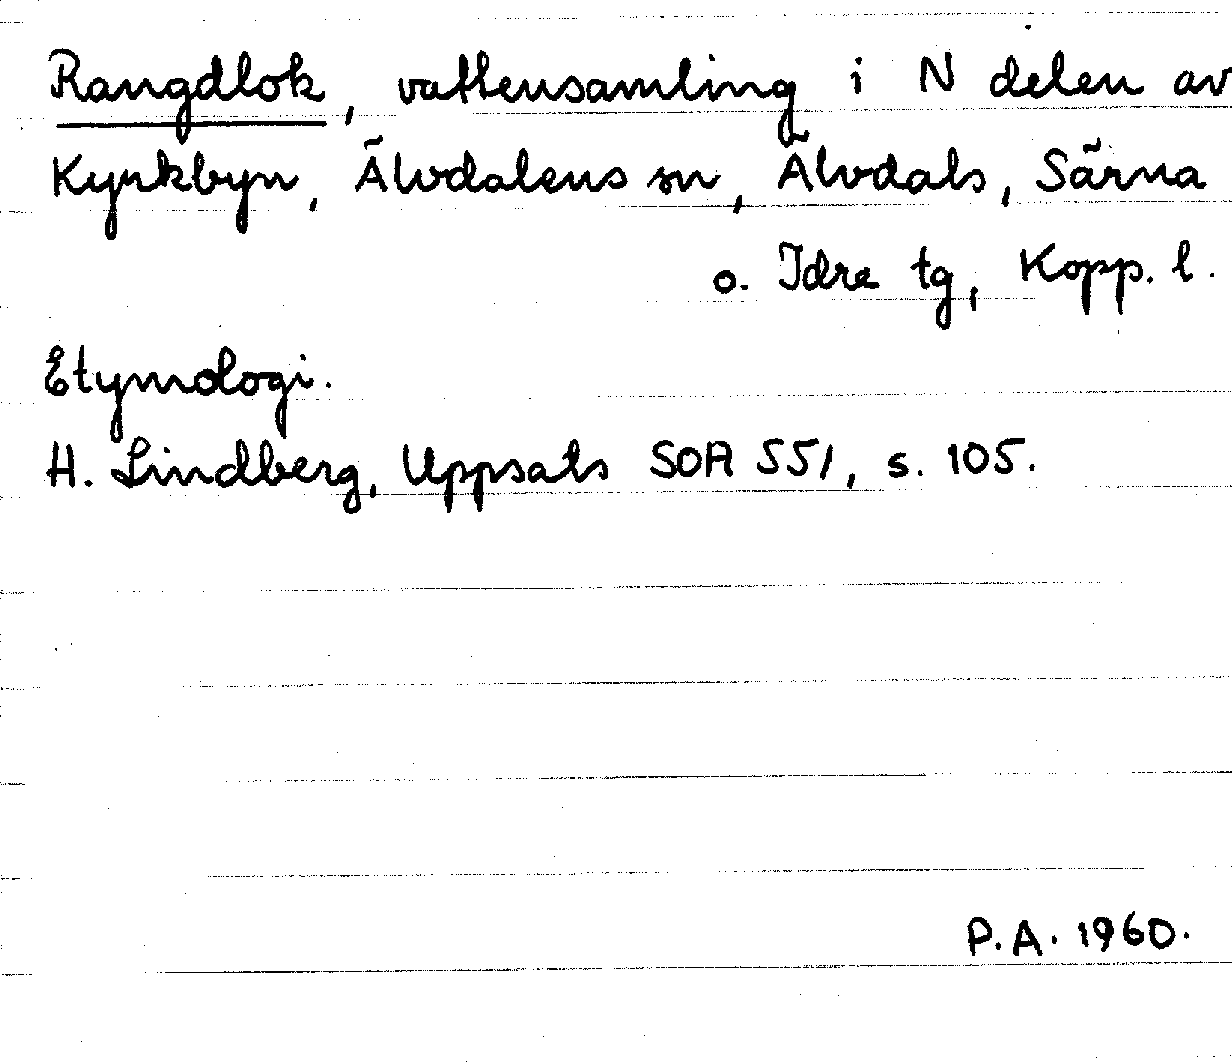 Rangdlok, vattensamling i N delen av
Kyrkbyn, Älvdalens sn, Älvdals, Särna
o. Idre tg, Kopp. l.
Etymologi.
H. Lindberg, Uppsats SOA 551, s. 105.
P.A. 1960.